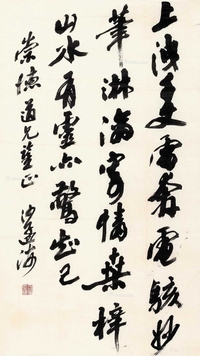 上洩千丈雷奔電駭妙
筆淋漓寄情桑梓
山水有靈亦驚知己
崇德道兄鑒正 沙孟海